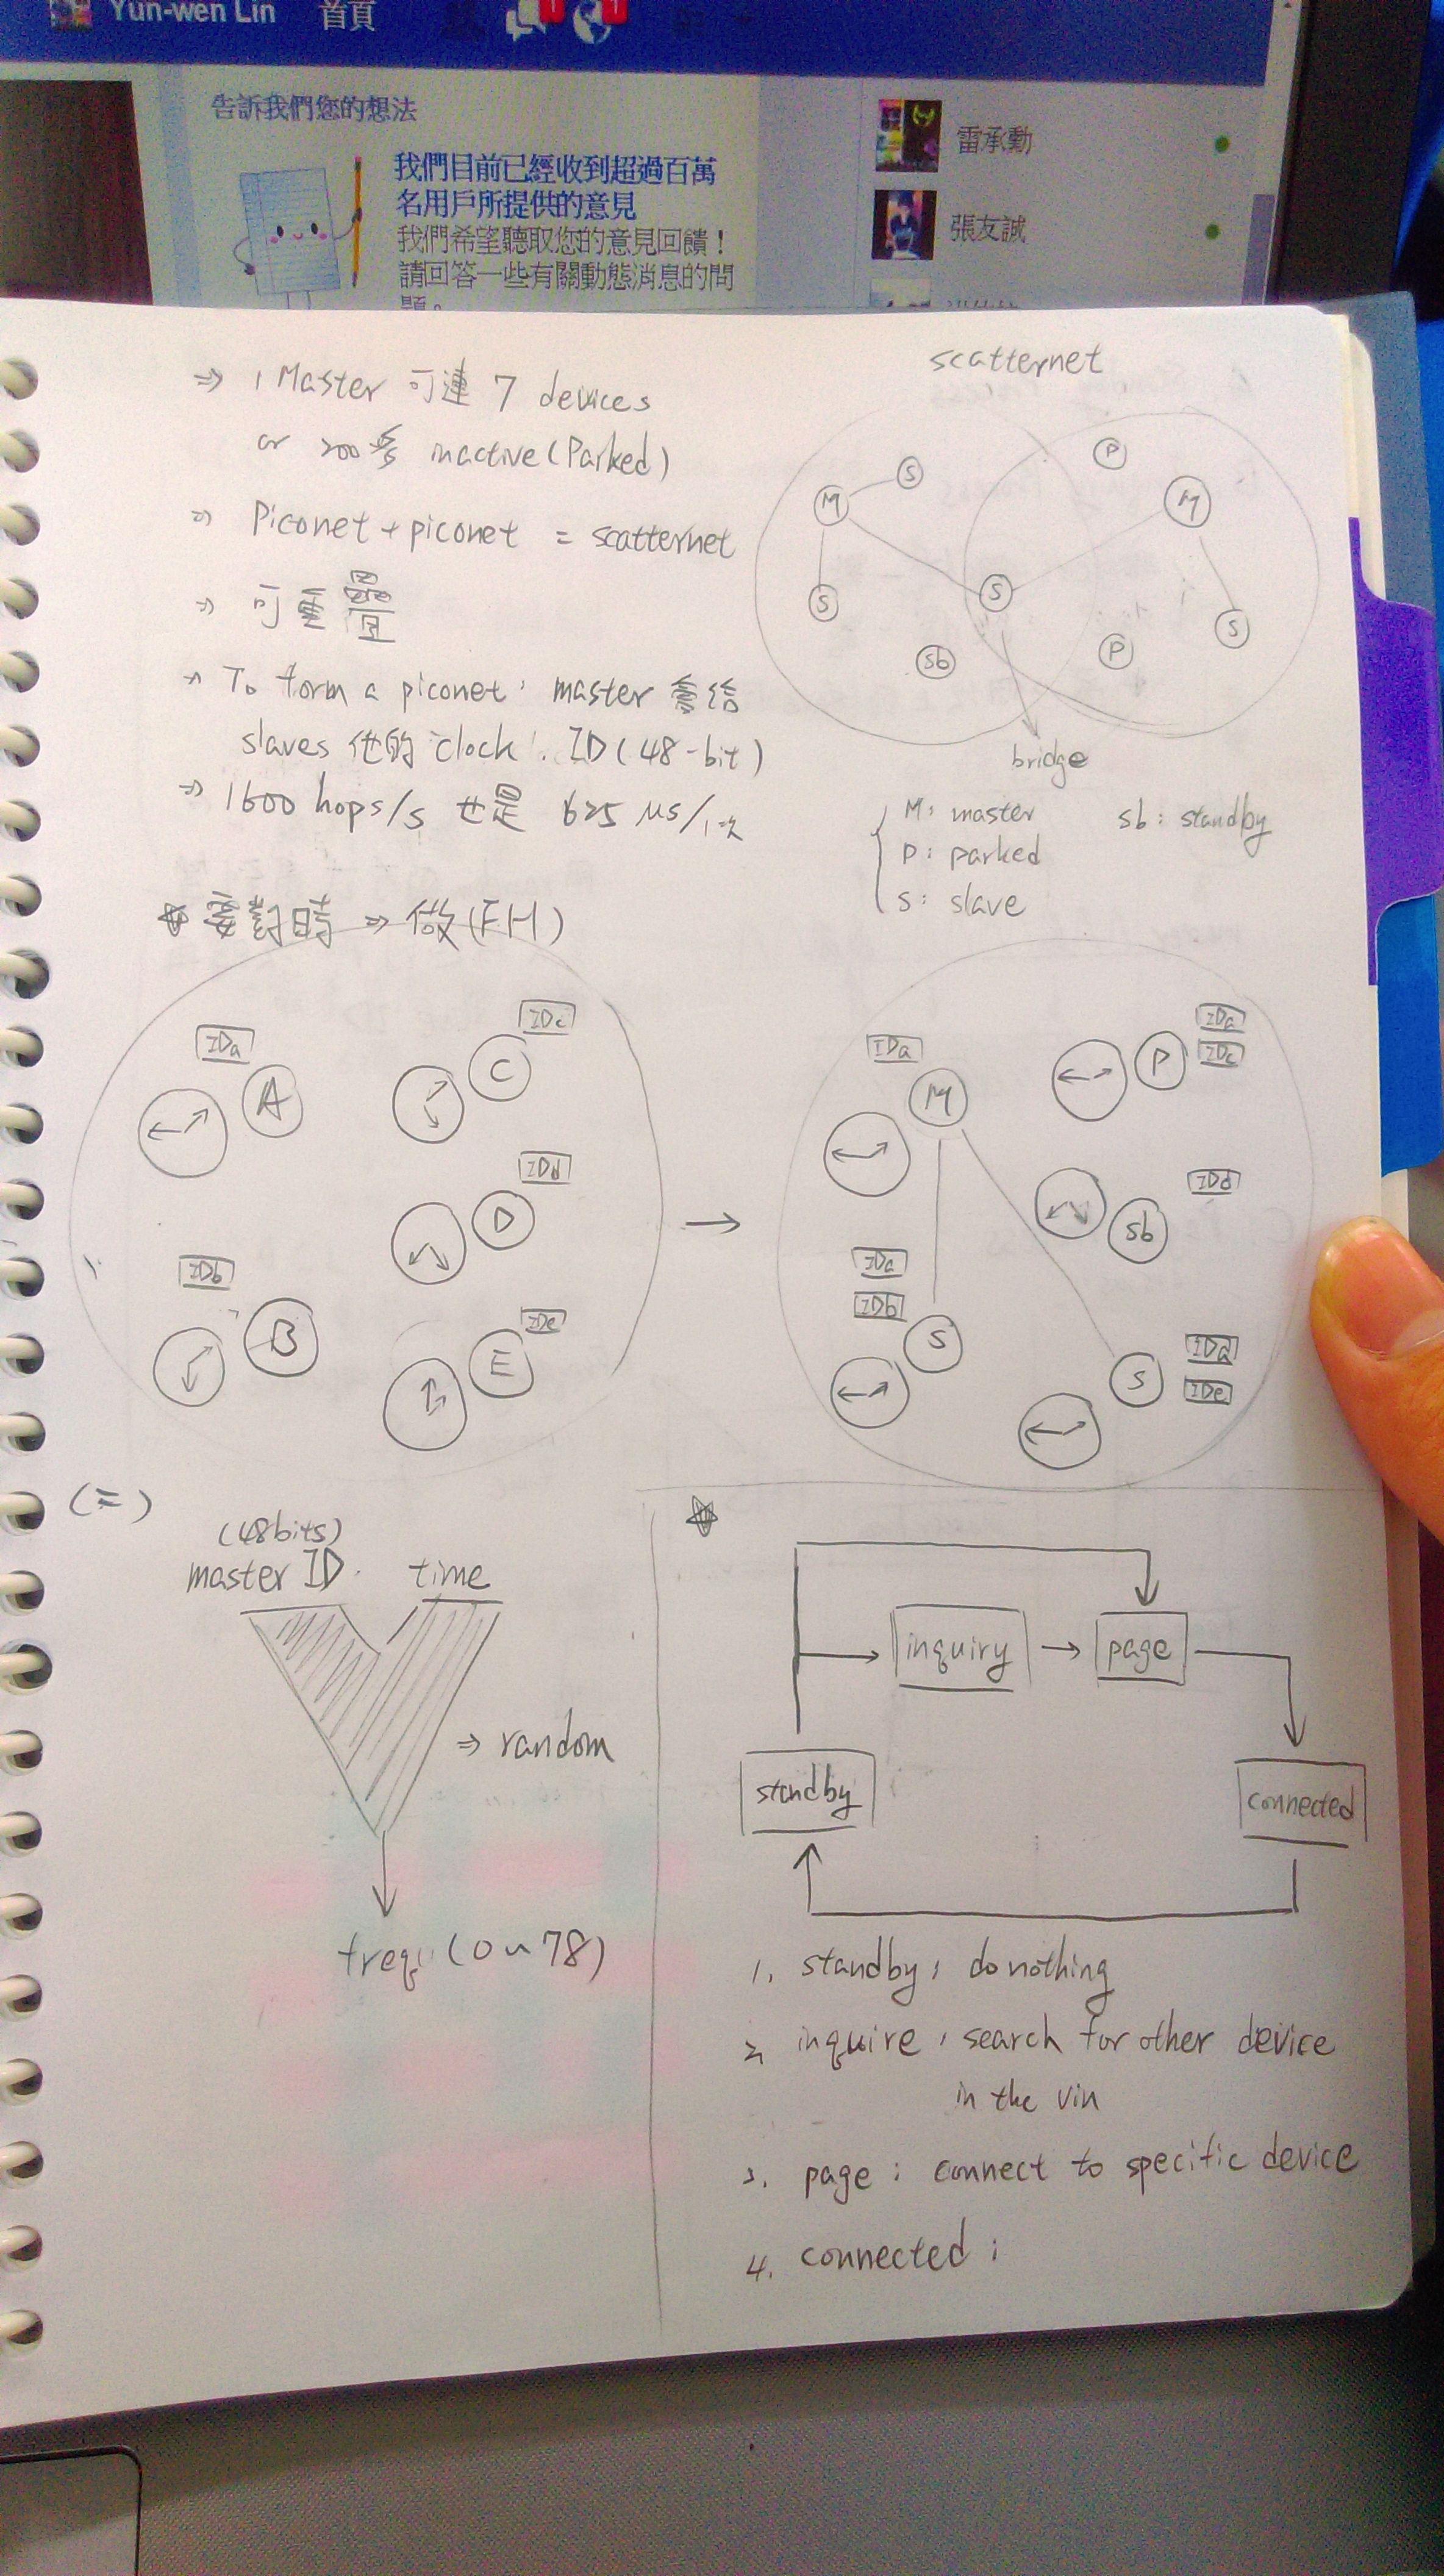 Yun-wen Lin 首頁
1 1
告訴我們您的想法
我們目前已經收到超過百萬
名用戶所提供的意見
我們希望聽取您的意見回饋！
請回答一些有關動態消息的問
題。
雷承勳
張友誠
⇒ 1 Master 可連 7 devices
or 200多 inactive (Parked)
⇒ Piconet + piconet = scatternet
⇒ 可重疊
⇒ To form a piconet, master 會給
slaves 他的 clock. ID (48-bit)
⇒ 1600 hops/s 也是 625 μs/1次
scatternet
P
S
M
M
S
S
S
P
sb
bridge
M: master
sb: standby
P: parked
S: slave
☆ 要對時 ⇒ 做(FH)
IDa
A
IDc
C
IDd
D
IDb
B
IDe
E
→
IDa
M
IDa
IDc
P
IDd
sb
IDa
IDb
S
IDa
IDe
S
(二)
(48bits)
master ID. time
⇒ random
freq. (0~78)
☆
inquiry → page
standby
connected
1. standby: do nothing
2. inquire: search for other device
in the vin
3. page: connect to specific device
4. connected: